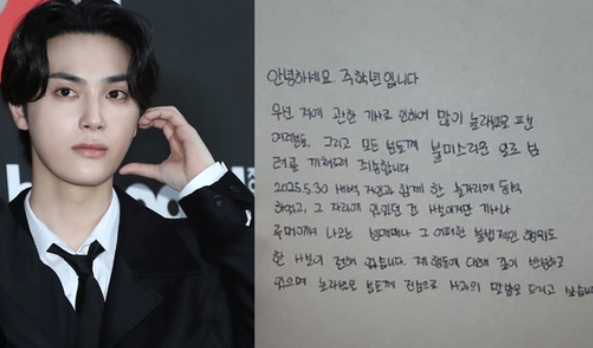 안녕하세요. 주학년입니다
우선 저에 관한 기사로 인하여 많이 놀라셨을 팬
여러분들, 그리고 모든 분들께 불미스러운 일로 심
려를 끼쳐드려 죄송합니다
2025.5.30 새벽 지인과 함께 한 술자리에 동석
하였고, 그 자리에 있었던 건 사실이지만 기사나
루머에서 나오는 성매매나 그 어떠한 불법적인 행위도
한 사실이 전혀 없습니다. 제 행동에 대해 깊이 반성하고
있으며 놀라셨을 분들께 진심으로 사과의 말씀을 드리고 싶습니